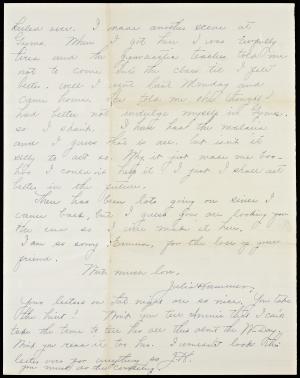 over. I made another scene at
Gym. When I got here I was
tired and the Gymnasium teacher told me
not to come into the class til I felt
better. Well I went last Monday and
came home. She told me she thought I
had better not indulge myself in Gym.
so I shan't. I have had the malaria
and I guess that is over. but isn't it
silly to act so. Why it just made me boo-
hoo I couldn't help it I just I shall act
better in the future.
There has been lots going on since I
came back, but I guess you are looking for
the end so I will make it here.
I am so sorry, for the loss of your
friend.
With much love,
Julia
Your letters on Sat night are so nice. You take
the hint! Wish you tell that I can't
take the time to tell her all this about the
Wish you read it to her. I looked this
letter over for anything so J.H.
you must do the correcting